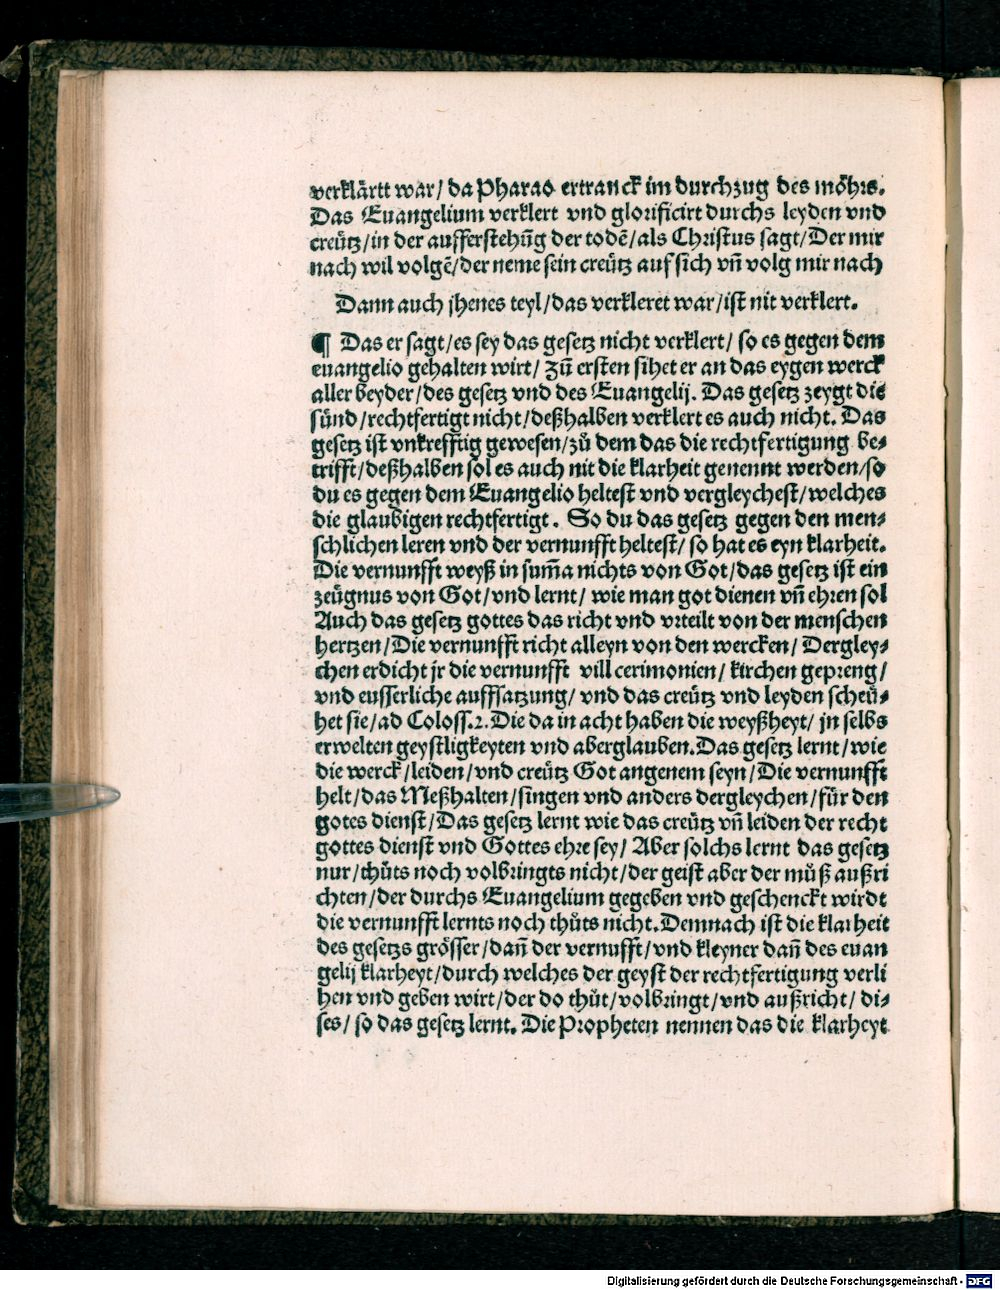 verklärtt war/ da Pharao ertranck im durchzug des möhrs.
Das Euangelium verklert vnd glorificirt durchs leyden vnd
creütz/in der aufferstehūg der todē/als Christus sagt/Der mir
nach wil volgē/der neme sein creütz auf sich vn̄ volg mir nach
Dann auch jhenes teyl/das verkleret war/ist nit verklert.
¶ Das er sagt/es sey das gesetz nicht verklert/ so es gegen dem
euangelio gehalten wirt/ zū ersten sihet er an das eygen werck
aller beyder/des gesetz vnd des Euangelij. Das gesetz zeygt die
sünd/rechtfertigt nicht/deßhalben verklert es auch nicht. Das
gesetz ist vnkrefftig gewesen/zů dem das die rechtfertigung be⸗
trifft/deßhalben sol es auch nit die klarheit genennt werden/so
du es gegen dem Euangelio heltest vnd vergleychest/welches
die glaubigen rechtfertigt. So du das gesetz gegen den men⸗
schlichen leren vnd der vernunfft heltest/ so hat es eyn klarheit.
Die vernunfft weyß in sum̄a nichts von Got/das gesetz ist ein
zeügnus von Got/vnd lernt/ wie man got dienen vn̄ ehren sol
Auch das gesetz gottes das richt vnd vrteilt von der menschen
hertzen/Die vernunfft richt alleyn von den wercken/ Dergley⸗
chen erdicht jr die vernunfft vill cerimonien/ kirchen gepreng/
vnd eusserliche auffsatzung/ vnd das creütz vnd leyden scheü⸗
het sie/ad Coloss.2. Die da in acht haben die weyßheyt/ jn selbs
erwelten geystligkeyten vnd aberglauben. Das gesetz lernt/wie
die werck/leiden/vnd creütz Got angenem seyn/Die vernunfft
helt/das Meßhalten/singen vnd anders dergleychen/für den
gotes dienst/Das gesetz lernt wie das creütz vn̄ leiden der recht
gottes dienst vnd Gottes ehre sey/ Aber solchs lernt das gesetz
nur/thůts noch volbringts nicht/der geist aber der můß außri
chten/der durchs Euangelium gegeben vnd geschenckt wirdt
die vernunfft lernts noch thůts nicht. Demnach ist die klarheit
des gesetzs grösser/dan̄ der vernufft/vnd kleyner dan̄ des euan
gelij klarheyt/durch welches der geyst der rechtfertigung verli
hen vnd geben wirt/der do thůt/volbringt/vnd außricht/ di⸗
ses/ so das gesetz lernt. Die Propheten nennen das die klarheyt
Digitalisierung gefördert durch die Deutsche Forschungsgemeinschaft - DFG